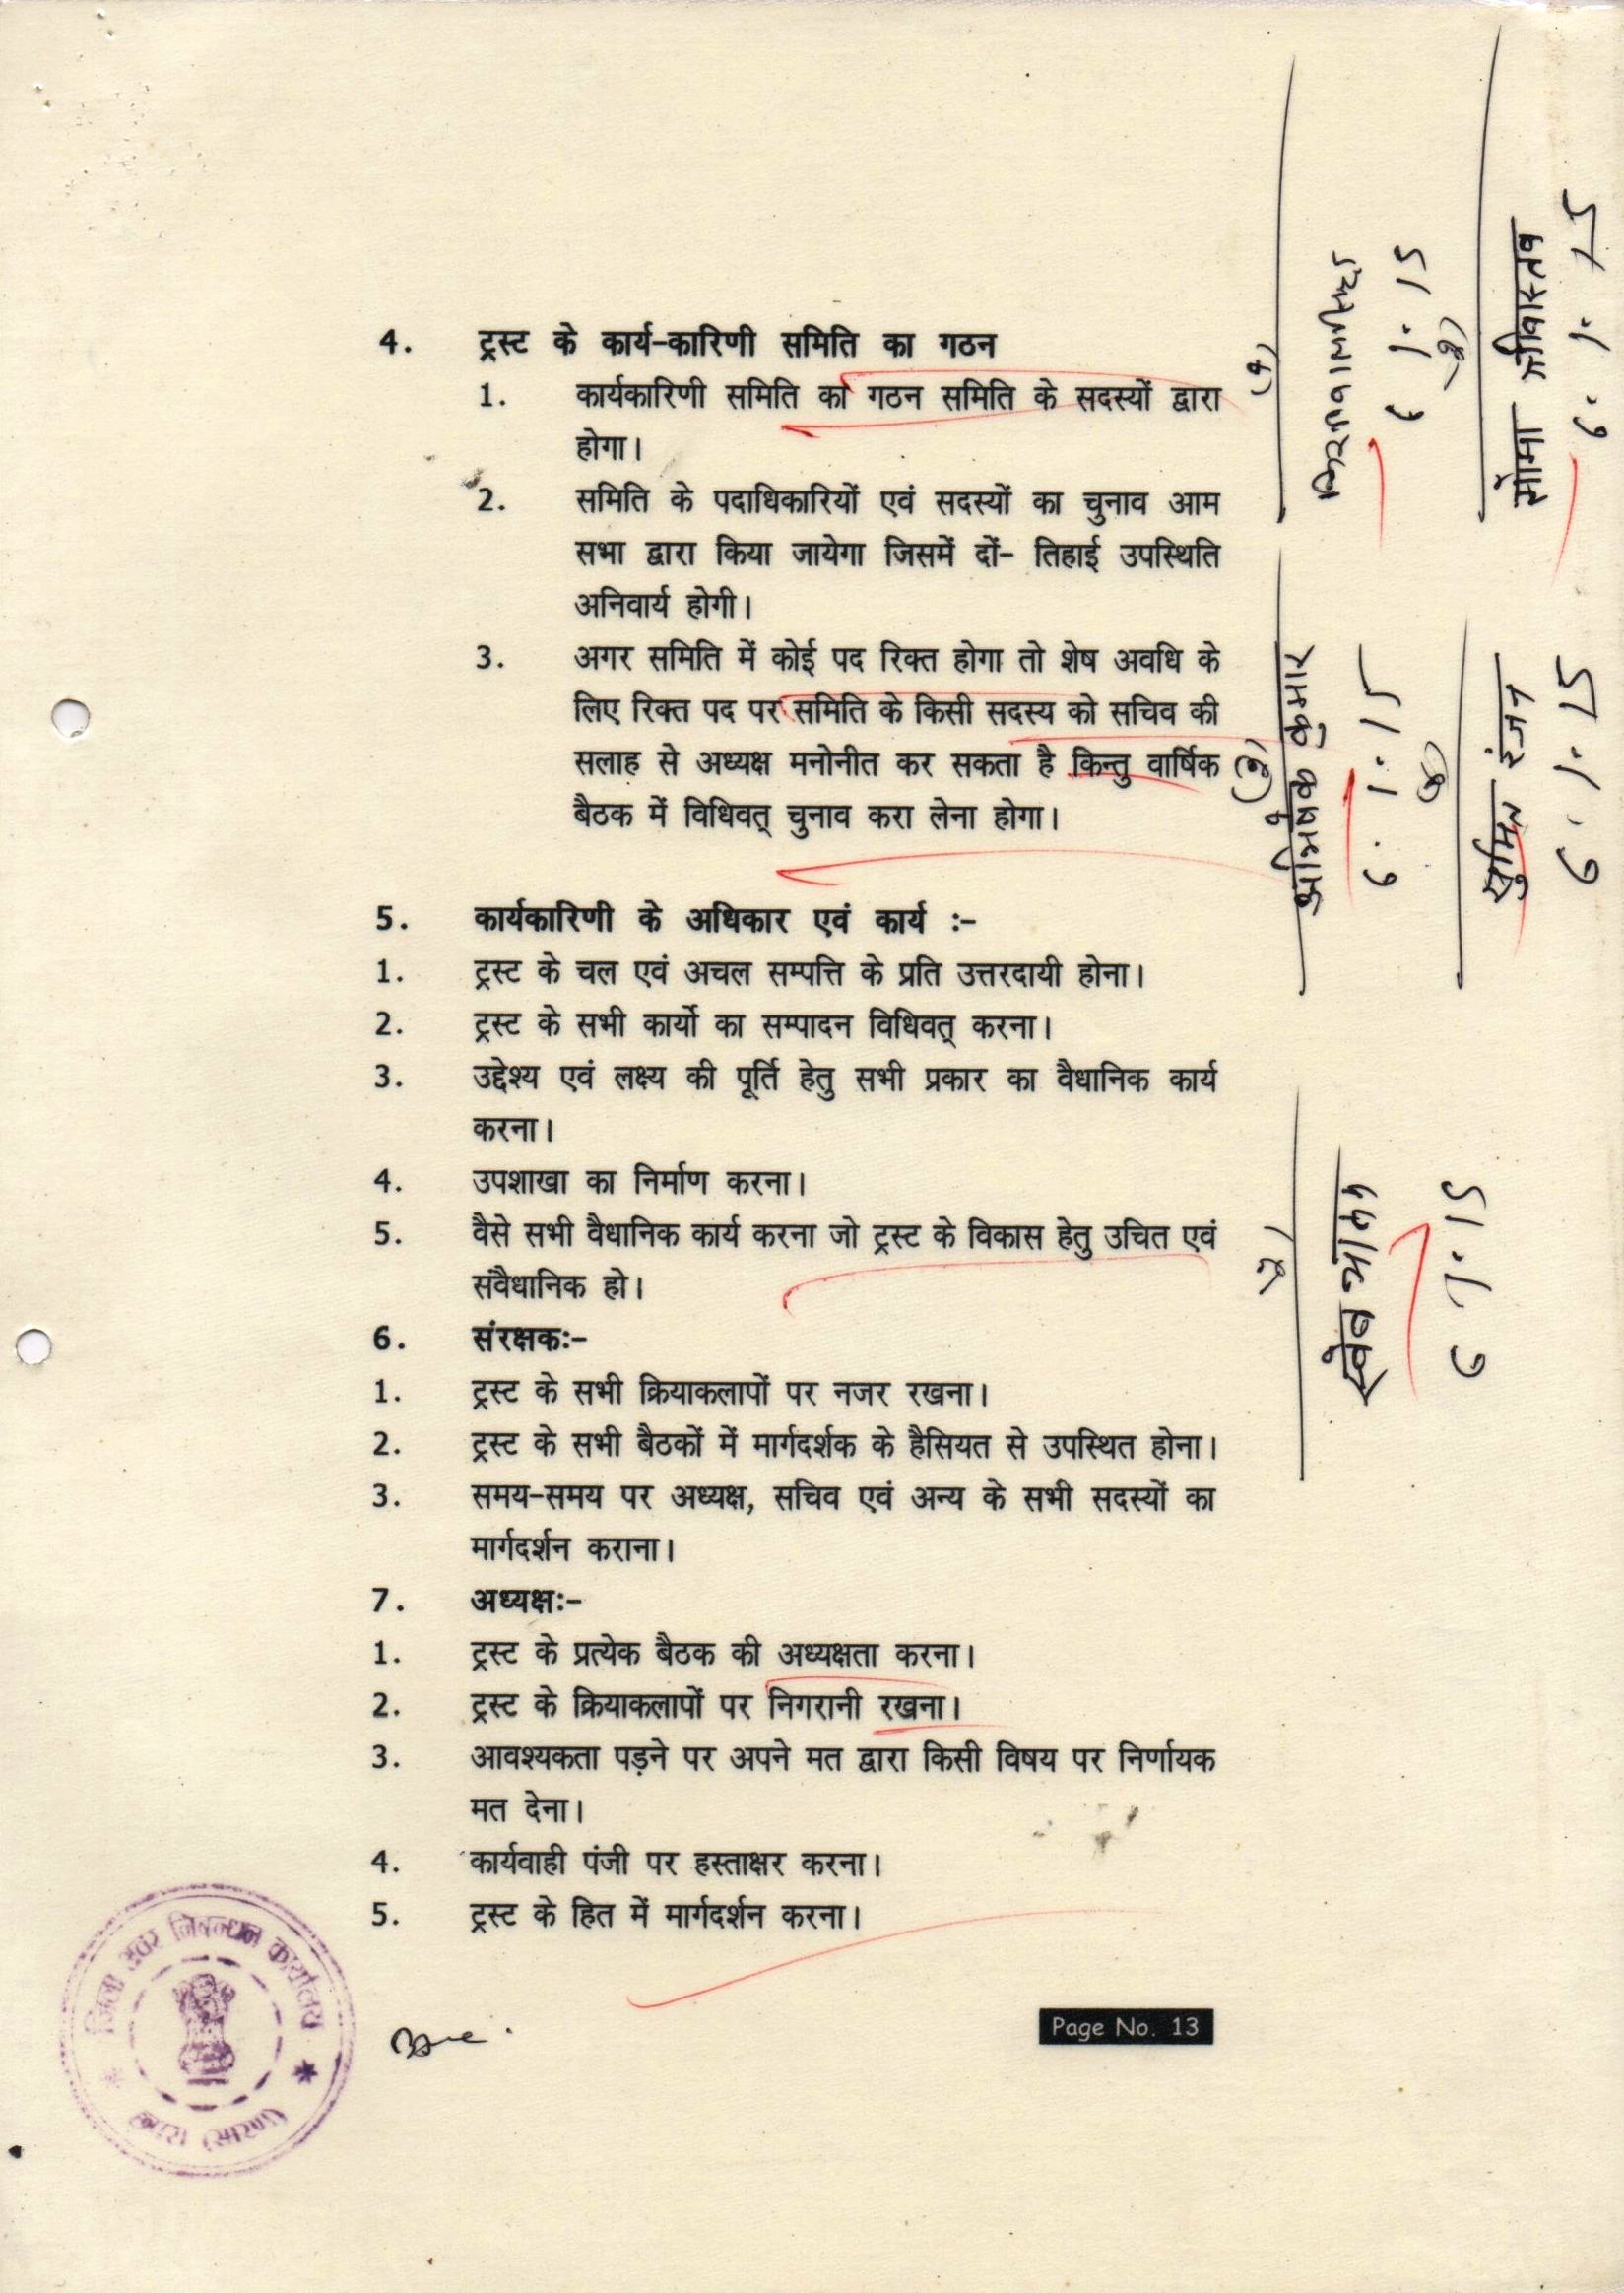 4. ट्रस्ट के कार्य-कारिणी समिति का गठन
1. कार्यकारिणी समिति का गठन समिति के सदस्यों द्वारा
होगा।
2. समिति के पदाधिकारियों एवं सदस्यों का चुनाव आम
सभा द्वारा किया जायेगा जिसमें दों- तिहाई उपस्थिति
अनिवार्य होगी।
3. अगर समिति में कोई पद रिक्त होगा तो शेष अवधि के
लिए रिक्त पद पर समिति के किसी सदस्य को सचिव की
सलाह से अध्यक्ष मनोनीत कर सकता है किन्तु वार्षिक
बैठक में विधिवत् चुनाव करा लेना होगा।
5. कार्यकारिणी के अधिकार एवं कार्य :-
1. ट्रस्ट के चल एवं अचल सम्पत्ति के प्रति उत्तरदायी होना।
2. ट्रस्ट के सभी कार्यो का सम्पादन विधिवत् करना।
3. उद्देश्य एवं लक्ष्य की पूर्ति हेतु सभी प्रकार का वैधानिक कार्य
करना।
4. उपशाखा का निर्माण करना।
5. वैसे सभी वैधानिक कार्य करना जो ट्रस्ट के विकास हेतु उचित एवं
संवैधानिक हो।
6. संरक्षकः-
1. ट्रस्ट के सभी क्रियाकलापों पर नजर रखना।
2. ट्रस्ट के सभी बैठकों में मार्गदर्शक के हैसियत से उपस्थित होना।
3. समय-समय पर अध्यक्ष, सचिव एवं अन्य के सभी सदस्यों का
मार्गदर्शन कराना।
7. अध्यक्षः-
1. ट्रस्ट के प्रत्येक बैठक की अध्यक्षता करना।
2. ट्रस्ट के क्रियाकलापों पर निगरानी रखना।
3. आवश्यकता पड़ने पर अपने मत द्वारा किसी विषय पर निर्णायक
मत देना।
4. कार्यवाही पंजी पर हस्ताक्षर करना।
5. ट्रस्ट के हित में मार्गदर्शन करना।
Page No. 13
जिला अवर निबन्धन कार्यालय
छपरा (सारण)
6.1.15
6.1.15
अभिषेक कुमार
6.1.15
सुमित रंजन
6.1.15
6.1.15